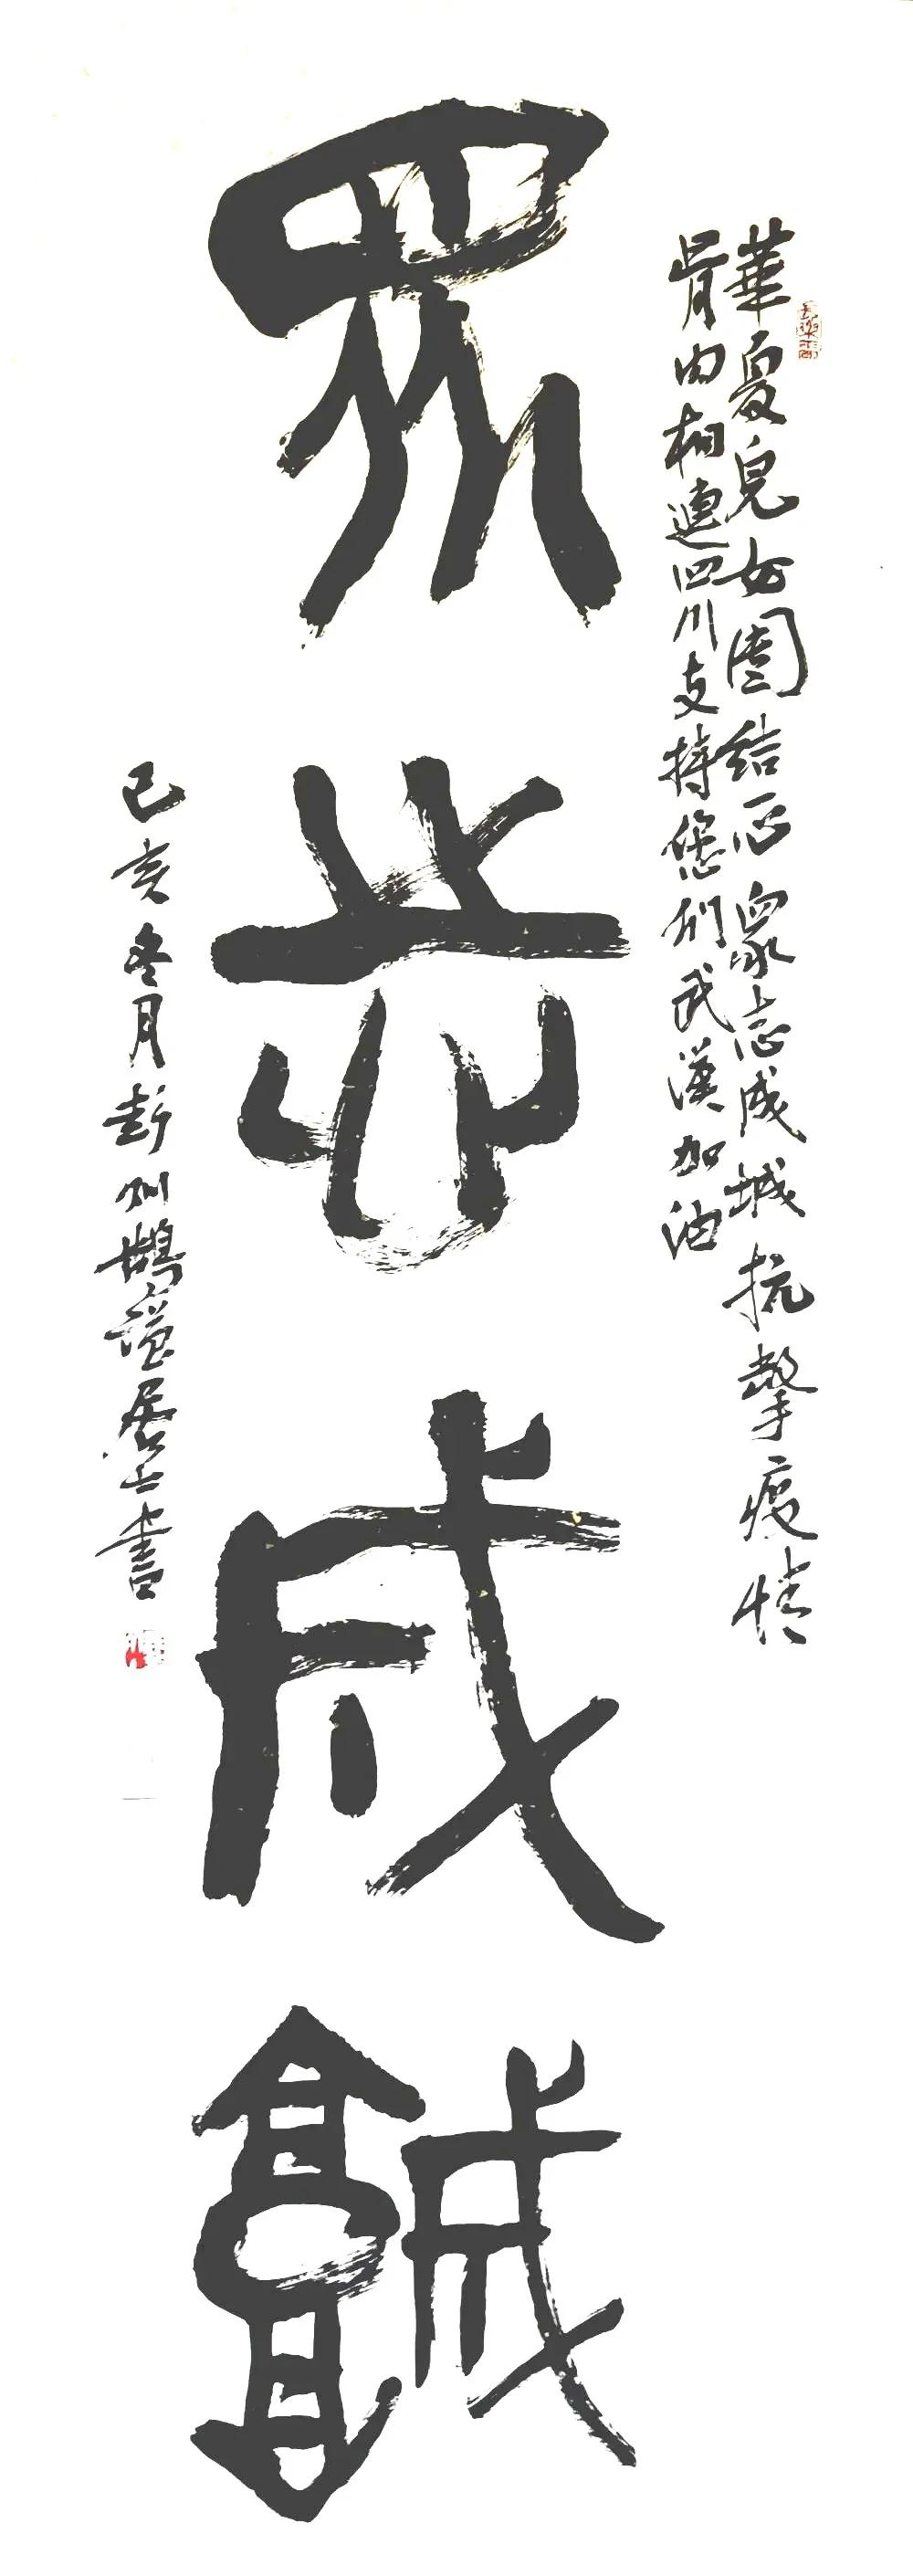 華夏兒女團結一心衆志成城抗擊疫情
骨肉相連四川支持您們武漢加油
眾志成城
己亥冬月彭州居士書